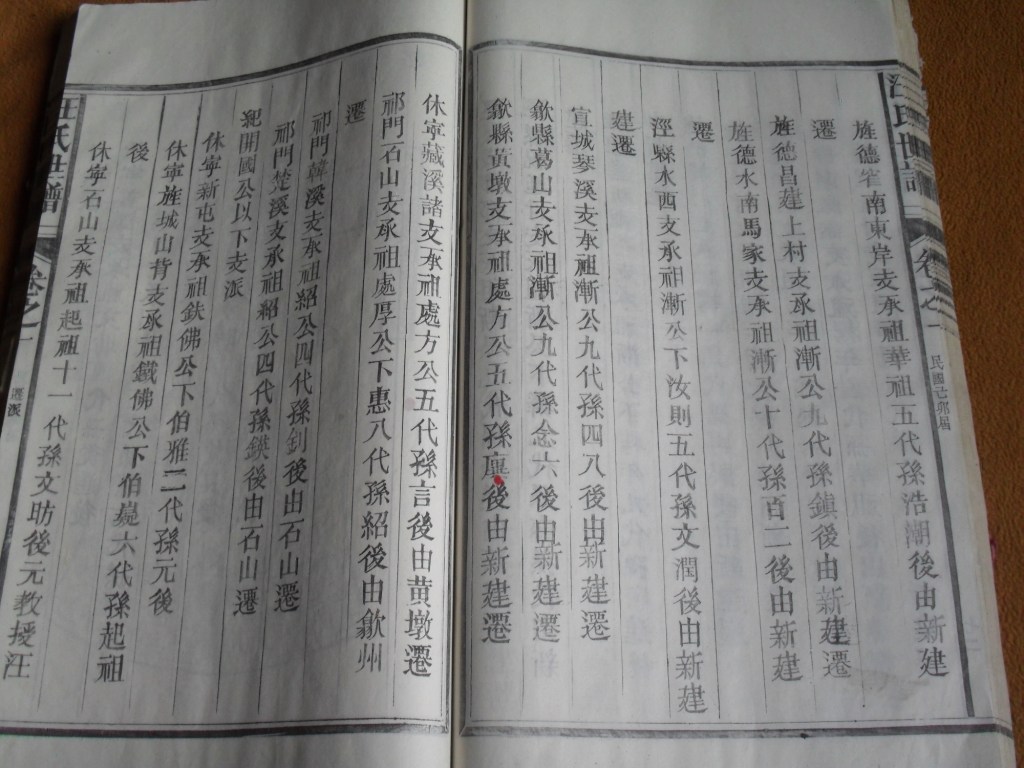 汪氏世譜
卷之一
民國己卯屆
旌德窄南東岸支承祖華祖五代孫浩潮後由新建
遷
旌德昌建上村支承祖漸公九代孫鎮後由新建遷
旌德水南馬家支承祖漸公十代孫百二後由新建
遷
涇縣水西支承祖漸公下汝則五代孫文潤後由新
建遷
宣城琴溪支承祖漸公九代孫四八後由新建遷
歙縣葛山支承祖漸公九代孫念六後由新建遷
歙縣黃墩支承祖處方公五代孫後由新建遷
休寧藏溪諸支承祖處方公五代孫言後由黃墩遷
祁門石山支承祖處厚公下惠八代孫紹後由歙州
遷
祁門韓溪支承祖紹公四代孫釗後由石山遷
祁門楚溪支承祖紹公四代孫鍈後由石山遷
親開國公以下支派
休寧新屯支承祖鈇佛公下伯雅二代孫元後
休寧旌城山背支承祖鐵佛公下伯堯六代孫起祖
後
休寧石山支承祖起祖十一代孫文昉後元教授汪
汪氏世譜
卷之一
遷派